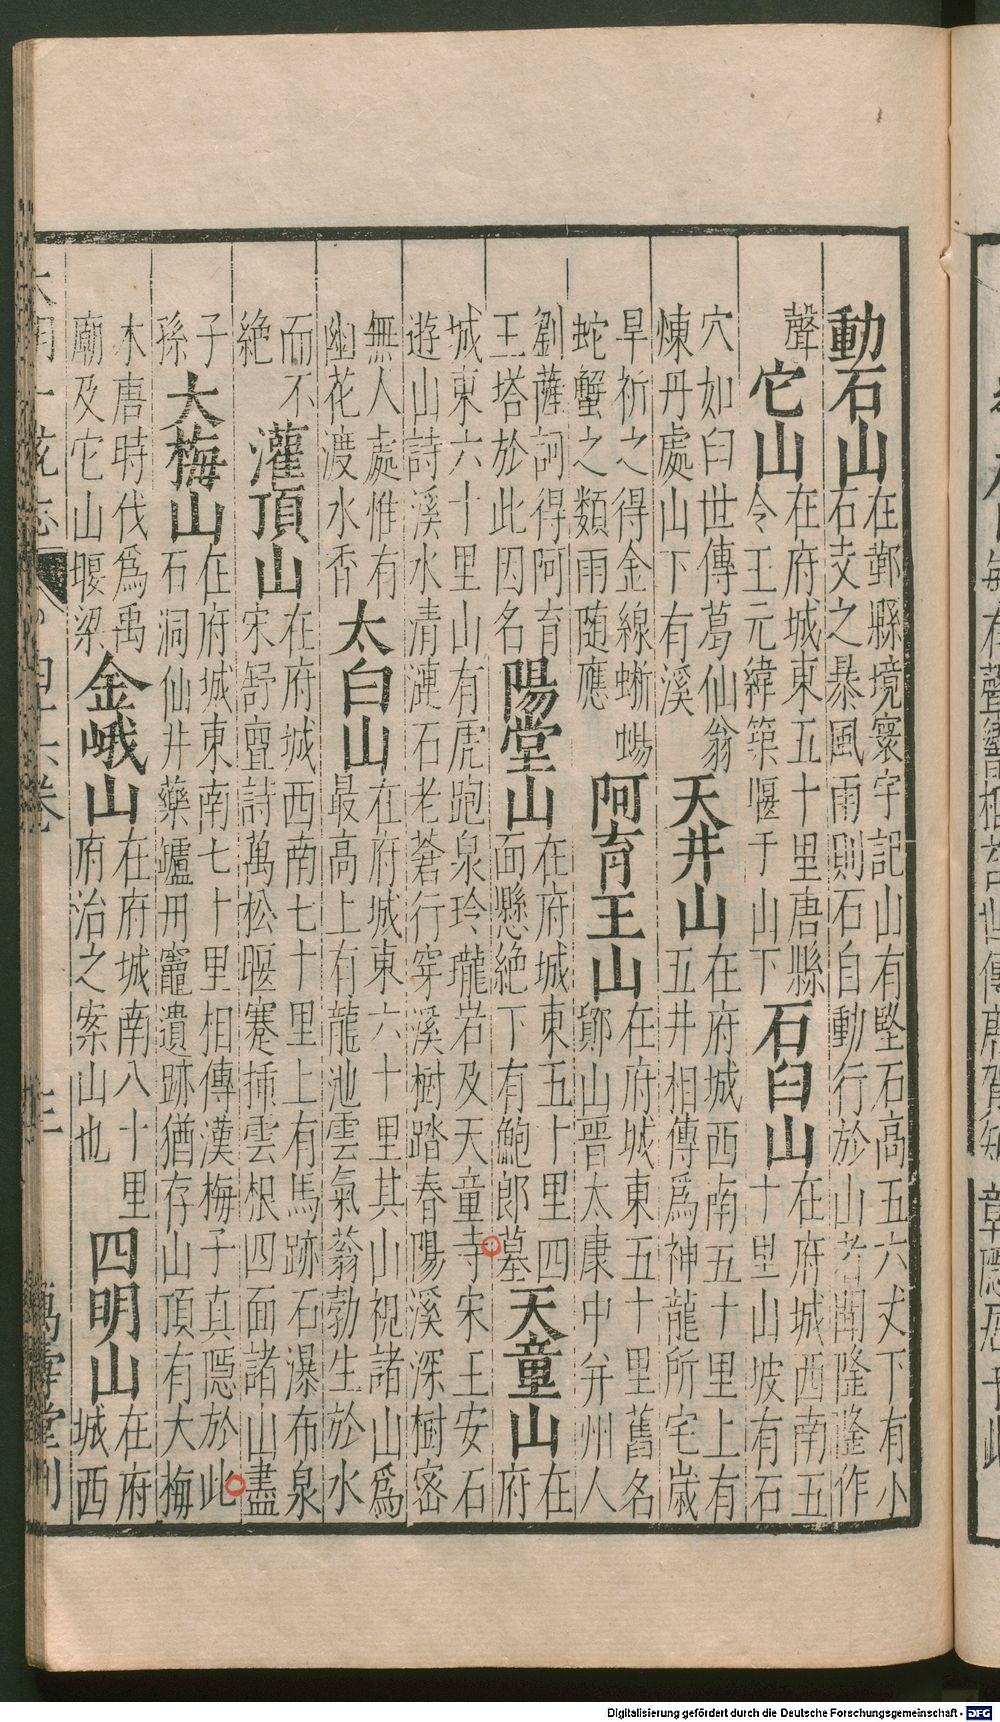 動石山
在鄞縣境寰宇記山有堅石高五六丈下有小
石支之暴風雨則石自動行於山者聞隆隆作
聲
它山
在府城東五十里唐縣
令王元緯築堰于山下
石臼山
在府城西南五
十里山坡有石
穴如臼世傳葛仙翁
煉丹處山下有溪
天井山
在府城西南五十里上有
五井相傳爲神龍所宅歲
旱祈之得金線蜥蜴
蛇蟹之類雨随應
阿育王山
在府城東五十里舊名
鄮山晉太康中弁州人
劉薩訶得阿育
王塔於此因名
陽堂山
在府城東五十里四
面懸絶下有鮑郎墓
天童山
在
府
城東六十里山有虎跑泉玲瓏岩及天童寺宋王安石
遊山詩溪水清漣石老蒼行穿溪樹踏春陽溪深樹密
無人處惟有
幽花渡水香
太白山
在府城東六十里其山視諸山爲
最高上有龍池雲氣蓊勃生於水
而不
絶
灌頂山
在府城西南七十里上有馬跡石瀑布泉
宋舒亶詩萬松堰蹇揷雲根四面諸山盡
子
孫
大梅山
在府城東南七十里相傳漢梅子真隱於此
石洞仙井藥爐丹竈遺跡猶存山頂有大梅
木唐時伐爲禹
廟及它山堰梁
金峨山
在府城南八十里
府治之案山也
四明山
在府
城西
四十六卷
三
萬壽堂刊
Digitalisierung gefördert durch die Deutsche Forschungsgemeinschaft - DFG